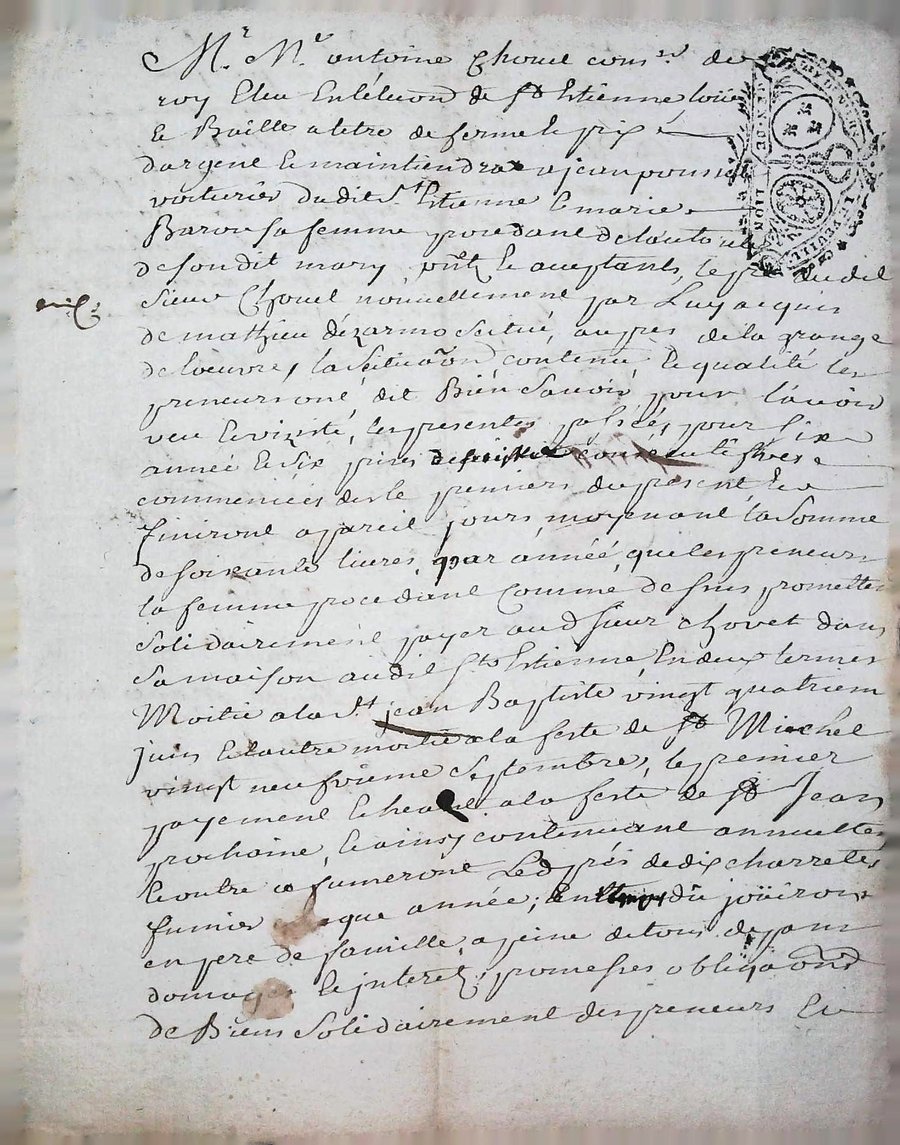 Mr. Me antoine Chovel consr. du
roy Eleu En lélection de St Estienne loüe
Et Baille a titre de ferme le prix
dargent Et maintiendra a jean
voiturier dudit St. Estienne Et marie
Baron sa femme procedant de lautorité
de son dit mary, pnts Et acceptants, le pré du dit
sieur Chovel nouvellement par Luy acquis
de mathieu dézarmo Scitué, aupres de la grange
de loeuvre, la Scituaõn contenu, Et qualité les
preneurs ont dit Bien Savoir pour lavoir
veu Et vizité, les presentes passées pour six
année Et six prises consécutifves
commencées des le premiers du present Et
finiront a pareil jours, moyenant la somme
de soixante livres, par année, que les preneurs
la femme procedant Comme de sus promettent
Solidairement payer aud sieur Chovet dans
Sa maison audit St Estienne, En deux termes
Moitié a la St jean Baptiste vingt quatriem
juin Et lautre moitié a la feste de St Michel
vingt neufvieme Septembre, le premier
payement a la feste de St Jean
prochaine, Et ainsy continuant annuellem
Et outre ce fumeront Led prés de dix charretes
fumier que année; dû joüiront
en pere de famille, a peine de tous depans
domages Et jnterets; promesses obligaõns
de Biens Solidairement des preneurs Et
GEN. DE LION